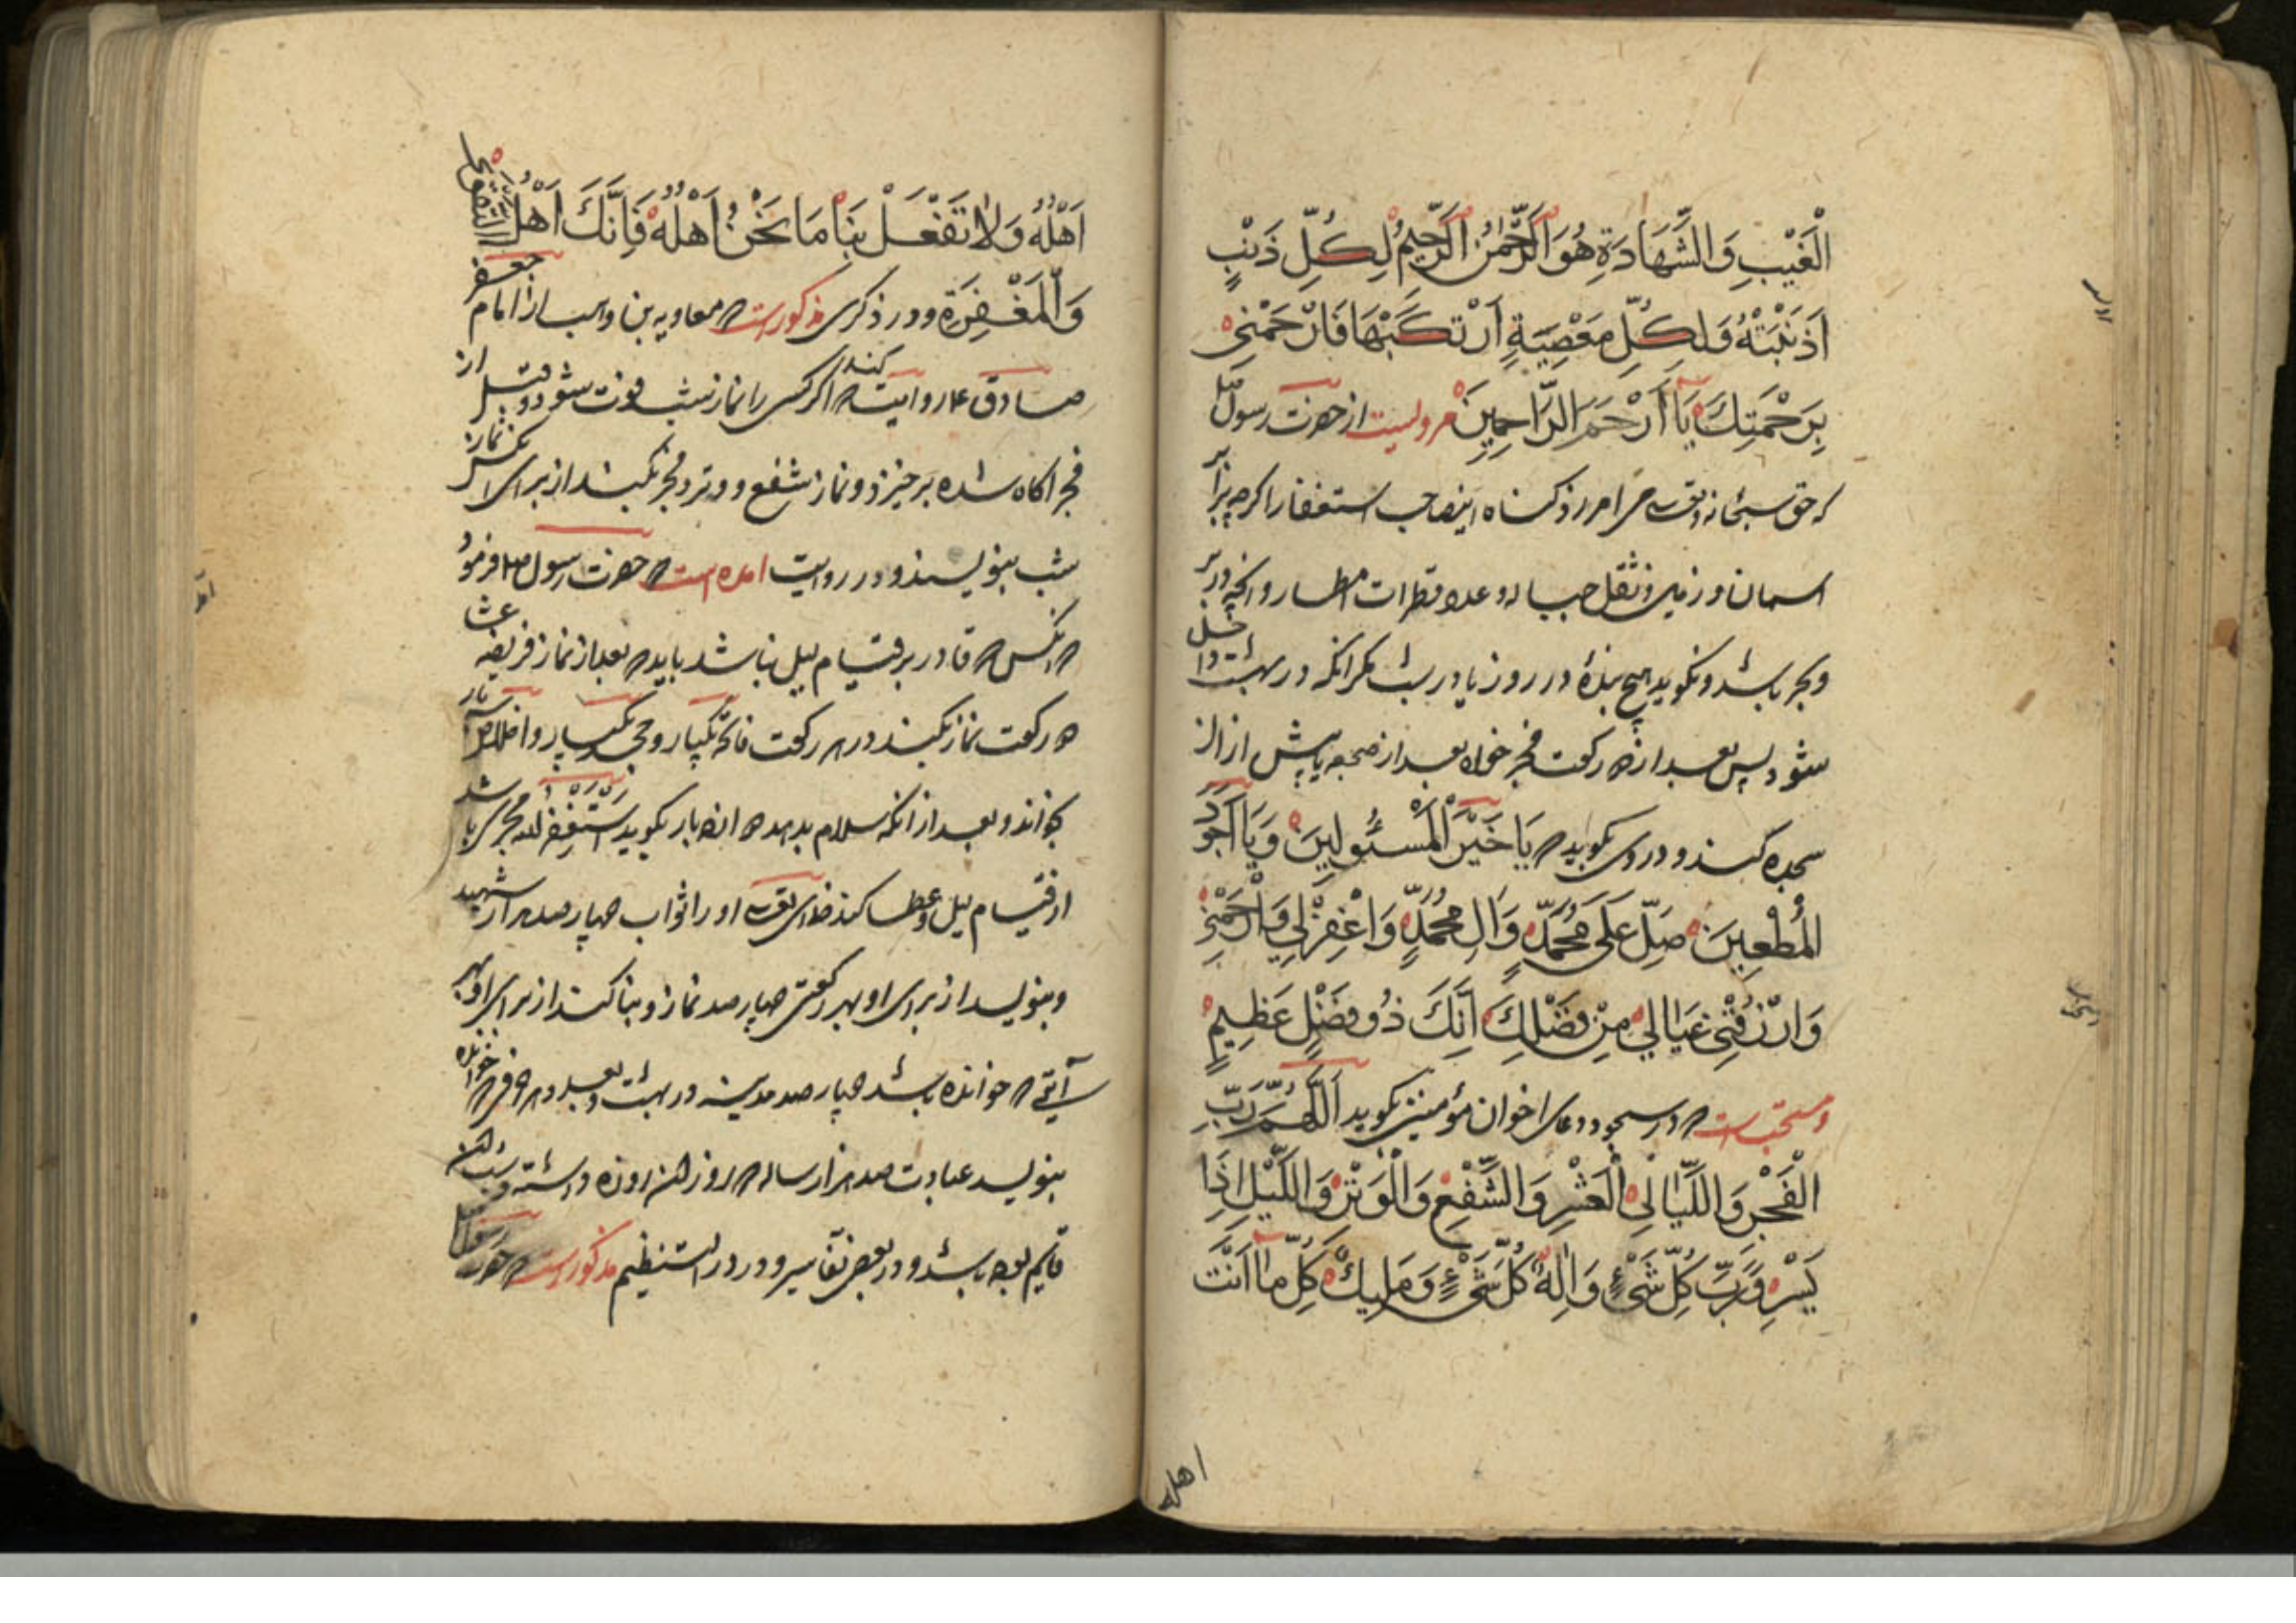 الْغَيْبِ وَالشَّهَادَةِ هُوَ الرَّحْمٰنُ الرَّحِيمُ لِكُلِّ ذَنْبٍ
اَذْنَبْتُهُ وَلِكُلِّ مَعْصِيَةٍ اَرْتَكَبْتُهَا فَارْحَمْنِي
بِرَحْمَتِكَ يَا أَرْحَمَ الرَّاحِمِينَ مرویست از حضرت رسول
که حق سبحانه وتعالی می امرزد کناه اینصاحب استغفار را اکرچه برابر
اسمان و زمین و ثقل جبال و عدد قطرات امطار و انچه در بر
وبحر باشد ونکوید هیچ بندهٔ در روز یا در شب مکر انکه در بهشت داخل
شود پس بعد از رکعت فجر خواه بعد از ضجعه یا پیش از ان
سجده کند و در وی بکوید که يَا خَيْرَ الْمَسْئُولِينَ وَيَا اَجْوَدَ
الْمُعْطِينَ صَلِّ عَلَى مُحَمَّدٍ وَاٰلِ مُحَمَّدٍ وَاغْفِرْ لِي وَارْحَمْنِي
وَارْزُقْنِي عَيَالِي مِنْ فَضْلِكَ اِنَّكَ ذُو فَضْلٍ عَظِيمٍ
ومستحبست که در سجود دعای اخوان مؤمنین بکوید اَللّٰهُمَّ رَبَّ
الْفَجْرِ وَاللَّيَالِي الْعَشْرِ وَالشَّفْعِ وَالْوَتْرِ وَاللَّيْلِ اِذَا
يَسْرِ وَرَبَّ كُلِّ شَيْءٍ وَاِلٰهَ كُلِّ شَيْءٍ وَمَلِيكَ كُلِّ مَا اَنْتَ
اهله
اَهْلُهُ وَلَا تَفْعَلْ بِنَا مَا نَحْنُ اَهْلُهُ فَاِنَّكَ اَهْلُ التقوی
وَالْمَغْفِرَةِ و در ذکری مذکور است که معاویه بن وهب از امام جعفر
صادق ع روایت کند که اکر کسی را نماز شب فوت شود و قبل از
فجر اکاه شده برخیزد و نماز شفع و وتر و فجر بکند از برای انکس نماز
شب بنویسند و در روایت امده است که حضرت رسول ص فرمود
که انکس که قادر بر قیام لیل نباشد باید که بعد از نماز فریضه عشا
رکعت نماز بکند در هر رکعت فاتحه یکبار و جحد یکبار و اخلاص بار
بخواند و بعد از انکه سلام بدهد بار بکوید اَسْتَغْفِرُ الله مجزی باشد
از قیام لیل و عطا کند خدای تعالی او را ثواب چهار صد هزار شهید
وبنویسد از برای او بهر رکعتی چهار صد نماز و بنا کند از برای او بهر
آیتی که خوانده باشد چهار صد مدینه در بهشت و بعدد هر حرفی که خوانده
بنویسد عبادت صد هزار ساله که روز ان روزه داشته و شب ان
قایم بوده باشد و در بعضی تفاسیر و در در النظیم مذکور است که حضرت رسول